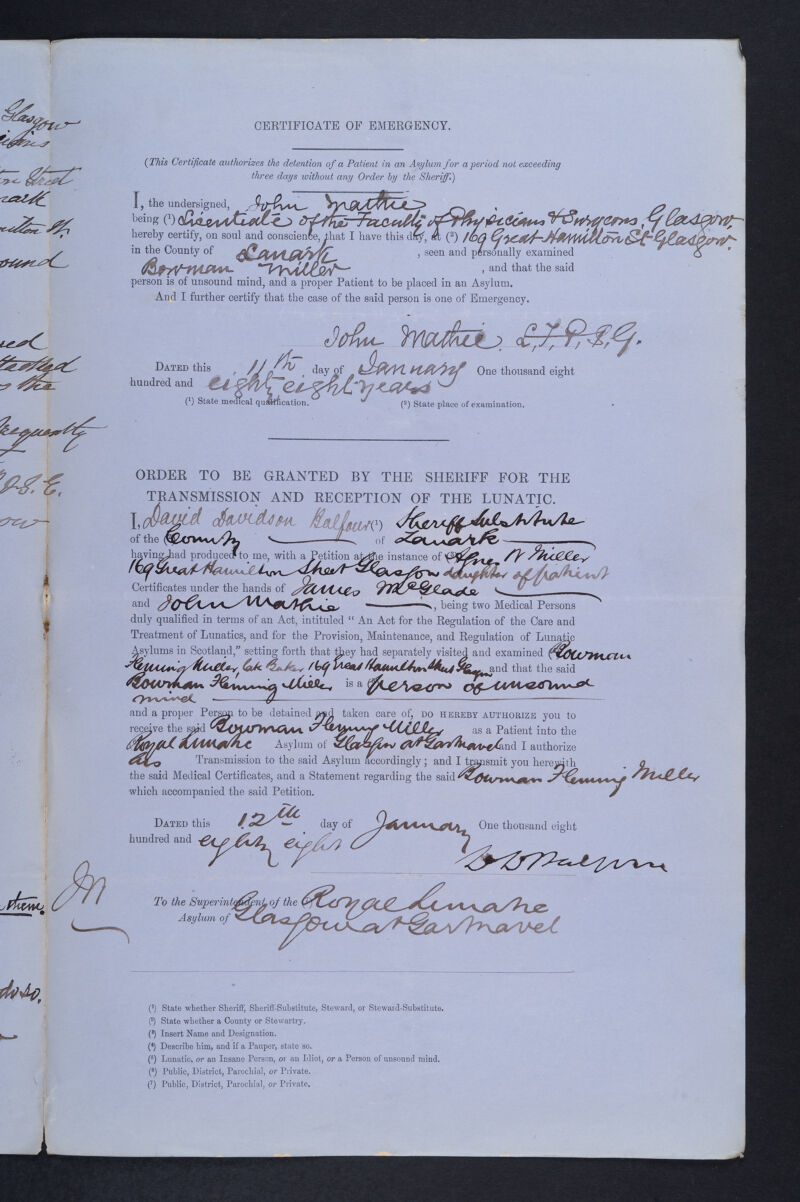 Glasgow
CERTIFICATE OF EMERGENCY.
(This Certificate authorizes the detention of a Patient in an Asylum for a period not exceeding
three days without any Order by the Sheriff.)
I, the undersigned, John Mathie
being (¹) Licentiate of the Faculty of Physicians & Surgeons, Glasgow,
hereby certify, on soul and conscience, that I have this day, at (²) 169 Great Hamilton St Glasgow.
in the County of Lanark, seen and personally examined
Bowman Miller, and that the said
person is of unsound mind, and a proper Patient to be placed in an Asylum.
And I further certify that the case of the said person is one of Emergency.
John Mathie. L.F.P.S.G.
DATED this 11th day of January One thousand eight
hundred and eighty eight years
(¹) State medical qualification. (²) State place of examination.
ORDER TO BE GRANTED BY THE SHERIFF FOR THE
TRANSMISSION AND RECEPTION OF THE LUNATIC.
I, David Davidson Balfour (¹) Sheriff Substitute
of the County of Lanark
having had produced to me, with a Petition at the instance of (³) Agnes W Miller
169 Great Hamilton Street Glasgow daughter of patient
Certificates under the hands of James McGlade
and John Mathie, being two Medical Persons
duly qualified in terms of an Act, intituled "An Act for the Regulation of the Care and
Treatment of Lunatics, and for the Provision, Maintenance, and Regulation of Lunatic
Asylums in Scotland," setting forth that they had separately visited and examined (⁴) Bowman
Fleming Miller, late Baker 169 Great Hamilton Street Glasgow and that the said
Bowman Fleming Miller is a (⁵) person of unsound
mind
and a proper Person to be detained and taken care of, DO HEREBY AUTHORIZE you to
receive the said Bowman Fleming Miller as a Patient into the
Royal Lunatic Asylum of Glasgow at Gartnavel and I authorize
his Transmission to the said Asylum accordingly; and I transmit you herewith
the said Medical Certificates, and a Statement regarding the said Bowman Fleming Miller
which accompanied the said Petition.
DATED this 12th day of January One thousand eight
hundred and eighty eight
D D Balfour
JM
To the Superintendent of the (⁷) Royal Lunatic
Asylum of Glasgow at Gartnavel
(¹) State whether Sheriff, Sheriff-Substitute, Steward, or Steward-Substitute.
(²) State whether a County or Stewartry.
(³) Insert Name and Designation.
(⁴) Describe him, and if a Pauper, state so.
(⁵) Lunatic, or an Insane Person, or an Idiot, or a Person of unsound mind.
(⁶) Public, District, Parochial, or Private.
(⁷) Public, District, Parochial, or Private.